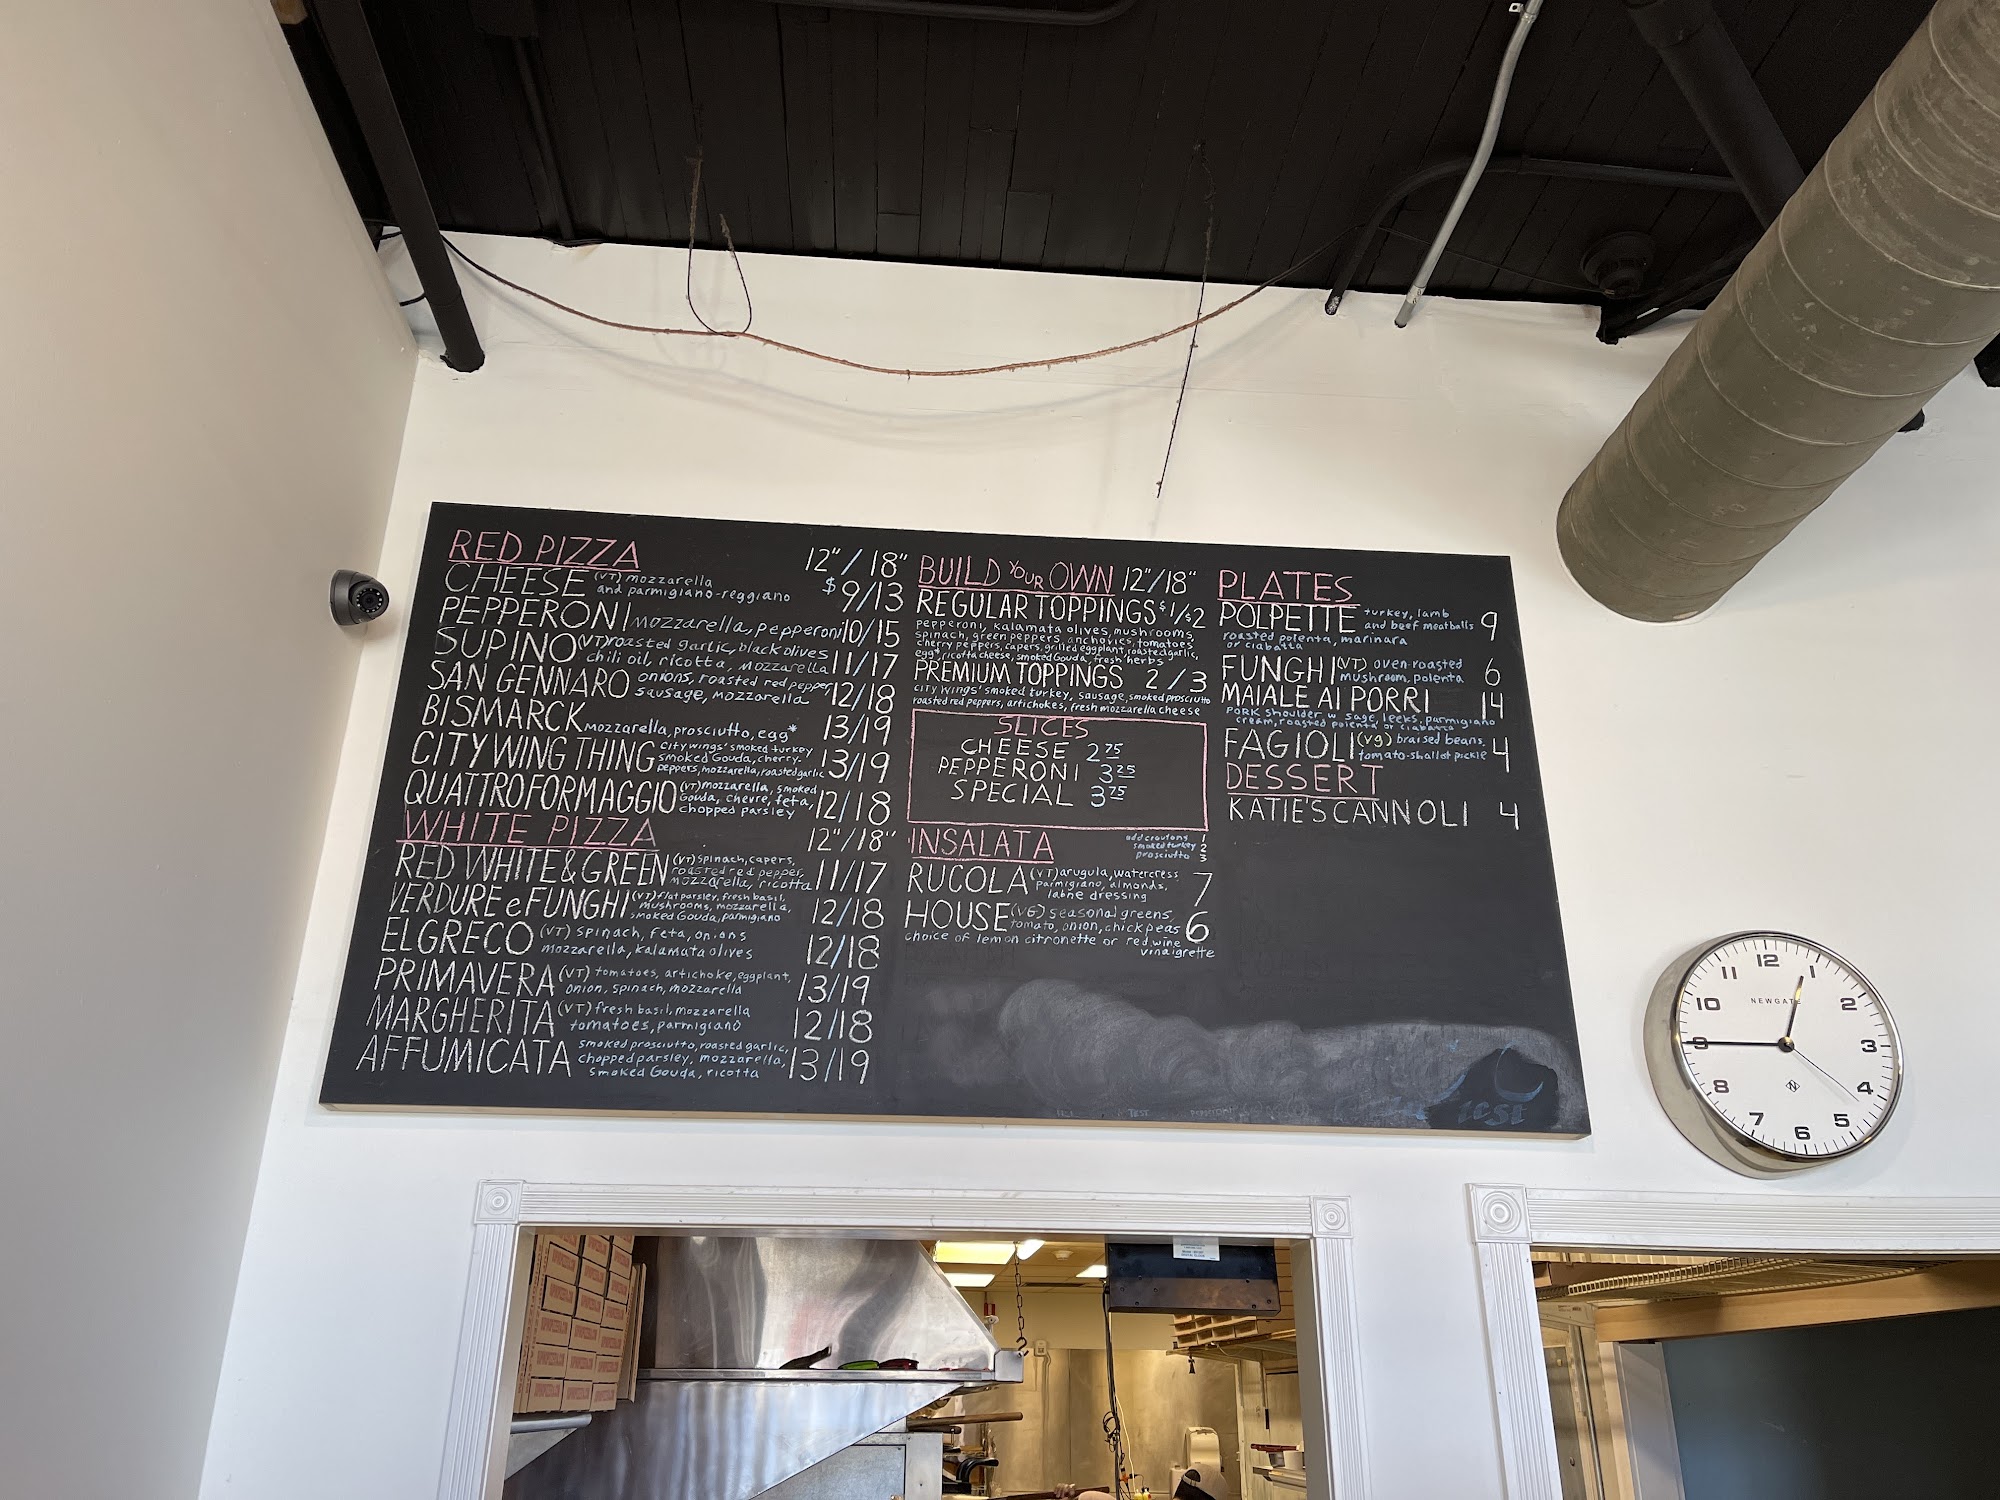 RED PIZZA 12"/18"
CHEESE (VT) mozzarella $9/13
and parmigiano-reggiano
PEPPERONI mozzarella, pepperoni 10/15
SUPINO (VT) roasted garlic, black olives 11/17
chili oil, ricotta, mozzarella
SAN GENNARO onions, roasted red pepper 12/18
sausage, mozzarella
BISMARCK mozzarella, prosciutto, egg* 13/19
CITY WING THING city wings' smoked turkey 13/19
smoked Gouda, cherry
peppers, mozzarella, roasted garlic
QUATTRO FORMAGGIO (VT) mozzarella, smoked 12/18
Gouda, chevre, feta,
chopped parsley
WHITE PIZZA 12"/18"
RED WHITE & GREEN (VT) spinach, capers, 11/17
roasted red pepper,
mozzarella, ricotta
VERDURE e FUNGHI (VT) flat parsley, fresh basil, 12/18
mushrooms, mozzarella,
smoked Gouda, parmigiano
EL GRECO (VT) spinach, feta, onions 12/18
mozzarella, kalamata olives
PRIMAVERA (VT) tomatoes, artichoke, eggplant, 13/19
onion, spinach, mozzarella
MARGHERITA (VT) fresh basil, mozzarella 12/18
tomatoes, parmigiano
AFFUMICATA smoked prosciutto, roasted garlic, 13/19
chopped parsley, mozzarella,
smoked Gouda, ricotta
BUILD YOUR OWN 12"/18"
REGULAR TOPPINGS $1/$2
pepperoni, kalamata olives, mushrooms,
spinach, green peppers, anchovies, tomatoes
cherry peppers, capers, grilled eggplant, roasted garlic,
egg*, ricotta cheese, smoked Gouda, fresh herbs
PREMIUM TOPPINGS 2/3
city wings' smoked turkey, sausage, smoked prosciutto
roasted red peppers, artichokes, fresh mozzarella cheese
SLICES
CHEESE 2.75
PEPPERONI 3.25
SPECIAL 3.75
INSALATA
add croutons 1
smoked turkey 2
prosciutto 3
RUCOLA (VT) arugula, watercress 7
parmigiano, almonds,
labne dressing
HOUSE (VG) seasonal greens, 6
tomato, onion, chickpeas
choice of lemon citronette or red wine
vinaigrette
PLATES
POLPETTE turkey, lamb 9
and beef meatballs
roasted polenta, marinara
or ciabatta
FUNGHI (VT) oven-roasted 6
mushroom, polenta
MAIALE AI PORRI 14
pork shoulder w sage, leeks, parmigiano
cream, roasted polenta or ciabatta
FAGIOLI (vg) braised beans, 4
tomato-shallot pickle
DESSERT
KATIE'S CANNOLI 4
TEST
12
1
2
3
4
5
6
7
8
9
10
11
NEWGATE
N